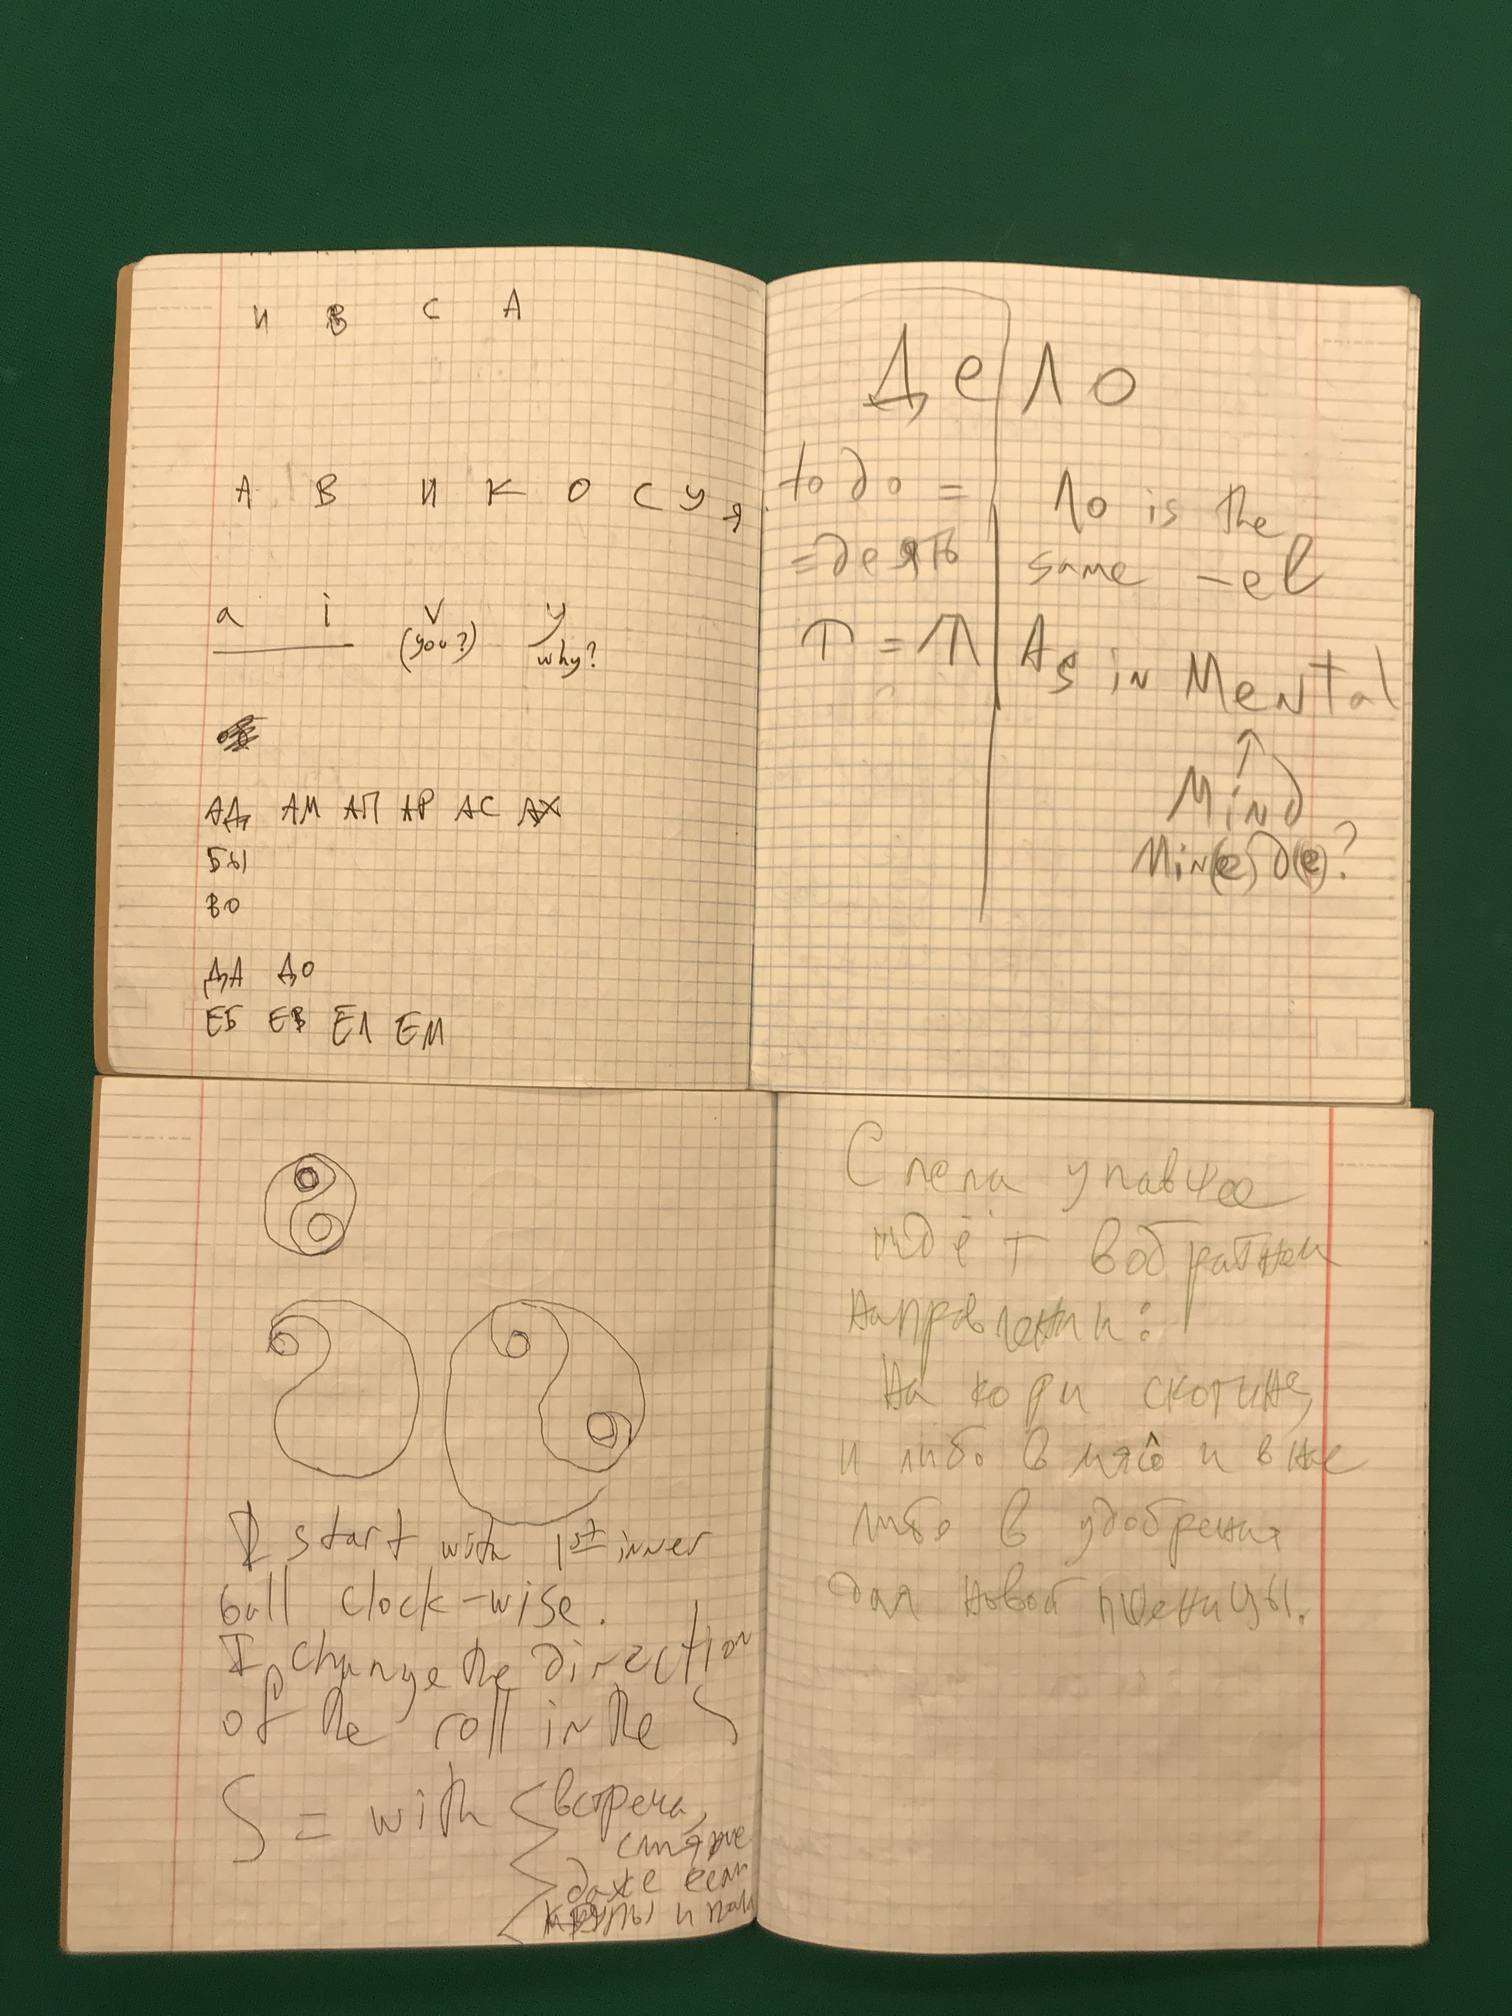 И В С А
А В И К О С У Я
a i v y
(you?) why?
АД АМ АП АР АС АХ
БЫ
ВО
ДА ДО
ЕБ ЕВ ЕЛ ЕМ
Дело
to do =
=деять
T = П
ло is the
same -el
As in Mental
Mind
Min(e) d(e)?
I start with 1st inner
ball clock-wise.
I change the direction
of the roll in the S
S = with встреча,
слияние
даже если
С пола упавшее
идёт в обратном
направлении:
На корм скотине,
и либо в мясо и в не
либо в удобрения
для новой пшеницы.